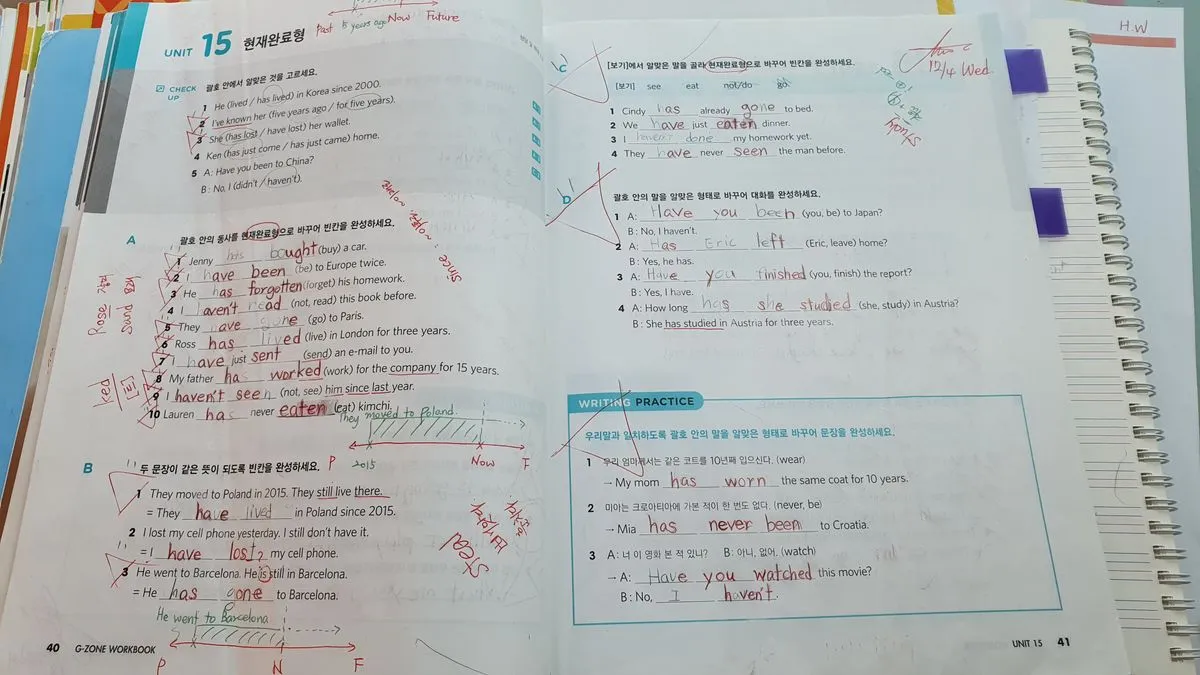 Past 5 years ago Now Future
UNIT 15 현재완료형
CHECK UP 괄호 안에서 알맞은 것을 고르세요.
1 He (lived / has lived) in Korea since 2000.
2 I've known her (five years ago / for five years).
3 She (has lost / have lost) her wallet.
4 Ken (has just come / has just came) home.
5 A: Have you been to China?
B: No, I (didn't / haven't).
A 괄호 안의 동사를 현재완료형으로 바꾸어 빈칸을 완성하세요.
1 Jenny has bought (buy) a car.
2 I have been (be) to Europe twice.
3 He has forgotten (forget) his homework.
4 I haven't read (not, read) this book before.
5 They have gone (go) to Paris.
6 Ross has lived (live) in London for three years.
7 I have just sent (send) an e-mail to you.
8 My father has worked (work) for the company for 15 years.
9 I haven't seen (not, see) him since last year.
10 Lauren has never eaten (eat) kimchi.
since :
They moved to Poland.
P 2015 Now F
B 두 문장이 같은 뜻이 되도록 빈칸을 완성하세요.
1 They moved to Poland in 2015. They still live there.
= They have lived in Poland since 2015.
2 I lost my cell phone yesterday. I still don't have it.
= I have lost my cell phone.
3 He went to Barcelona. He is still in Barcelona.
= He has gone to Barcelona.
He went to Barcelona
P N F
40 G-ZONE WORKBOOK
H.W
12/4 Wed
C [보기]에서 알맞은 말을 골라 현재완료형으로 바꾸어 빈칸을 완성하세요.
[보기] see eat not/do go
1 Cindy has already gone to bed.
2 We have just eaten dinner.
3 I haven't done my homework yet.
4 They have never seen the man before.
D 괄호 안의 말을 알맞은 형태로 바꾸어 대화를 완성하세요.
1 A: Have you been (you, be) to Japan?
B: No, I haven't.
2 A: Has Eric left (Eric, leave) home?
B: Yes, he has.
3 A: Have you finished (you, finish) the report?
B: Yes, I have.
4 A: How long has she studied (she, study) in Austria?
B: She has studied in Austria for three years.
WRITING PRACTICE
우리말과 일치하도록 괄호 안의 말을 알맞은 형태로 바꾸어 문장을 완성하세요.
1 우리 엄마께서는 같은 코트를 10년째 입으신다. (wear)
→ My mom has worn the same coat for 10 years.
2 미아는 크로아티아에 가본 적이 한 번도 없다. (never, be)
→ Mia has never been to Croatia.
3 A: 너 이 영화 본 적 있니? B: 아니, 없어. (watch)
→ A: Have you watched this movie?
B: No, I haven't.
UNIT 15 41